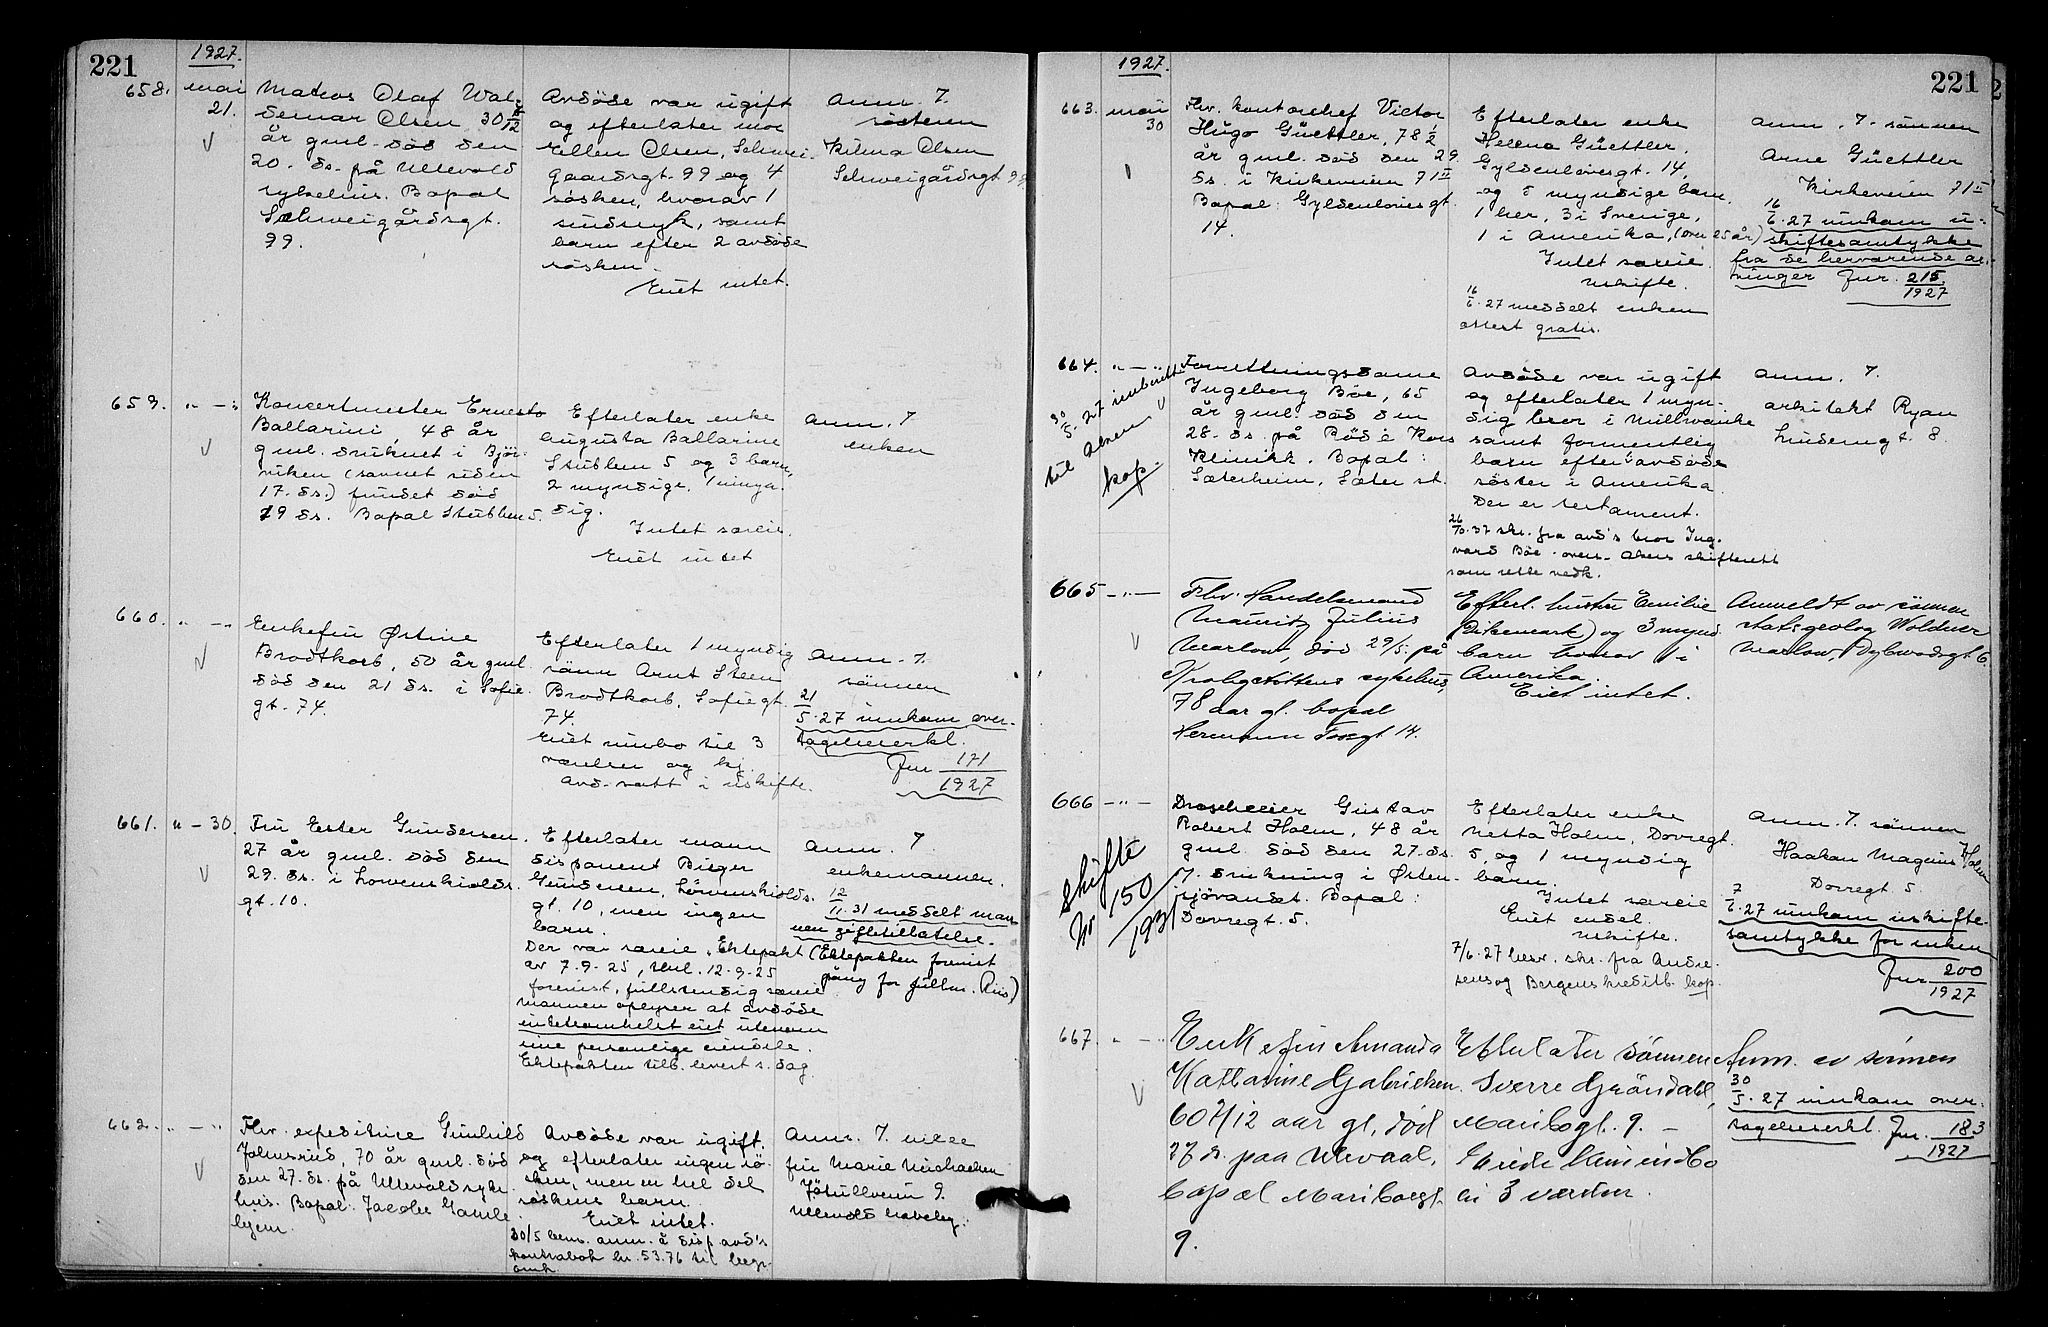 221
1927.
658. mai 21.
Olaf Wal-
demar Olsen 30 5/12
år gml. død den
20. ds. på Ullevold
sykehus. Bopæl
Schweigårdsgt.
99.
Avdøde var ugift
og efterlater mor
Ellen Olsen, Schwei-
gaardsgt. 99 og 4
søsken, hvorav 1
sindssyk, samt
barn efter 2 avdøde
søsken.
Eiet intet.
Anm. 7.
søsteren
Olsen
Schweigårdsgt 99
659. " — "
Koncertmester Ernesto
Ballarini, 48 år
gml. druknet i Bjør-
viken (savnet siden
17. ds.) fundet død
19 ds. Bopæl Stubben 5.
Efterlater enke
Augusta Ballarini
Stubben 5 og 3 barn,
2 myndige, 1 umyn-
dig.
Intet særeie.
Eiet intet
Anm. 7
enken
660. " — "
Enkefru Østine
Brodtkorb, 50 år gml.
død den 21 ds. i Sofie
gt. 74.
Efterlater 1 myndig
sønn Arnt Steen
Brodtkorb, Sofiegt.
74.
Eiet innbo til 3
værelser og kj.
Avd. satt i uskifte.
Anm. 7.
sønnen
21/5. 27 innkom over-
tagelseserkl.
Jnr 171/1927
661. " — 30.
Fru Ester Gundersen.
27 år gml. død den
29. ds. i Løvenskiolds.
gt. 10.
Efterlater mann
disponent Birger
Gundersen, Løvenskiolds.
gt. 10, men ingen
barn.
Der var særeie. Ektepakt
av 7-9-25, tinl. 12-9-25
forevist, fullstendig særeie
mannen opgir at avdøde
intetsomhelst eiet utenom
sine personlige eiendele.
Ektepakten tilb. levert s. dag
Anm. 7.
enkemannen.
12/11. 31 meddelt man-
nen giftetillatelse.
(Ektepakten forevist
påny for fullm. Riis)
662. " — "
Fhv. expeditrice Gunhild
Johnsrud, 70 år gml. død
den 27. ds. på Ullevold syke-
hus. Bopæl: Jacobs Gamle
hjem
Avdøde var ugift.
og efterlater ingen sø-
sken, men en hel del
søskens barn.
Eiet intet.
30/5 bem. anm. å disp avd's
kontrabok kr. 53.76 til begr.
omk
Anm. 7. niece
fru Marie
9.
Ullevold haveby.
221
1927.
663. mai 30
Fhv. kontorchef Victor
Hugo Güettler, 78 1/2
år gml. død den 29.
ds. i Kirkeveien 71 II
Bopæl: Gyldenløvesgt.
14.
Efterlater enke
Helena Güettler,
Gyldenløvesgt. 14,
og 5 myndige barn,
1 her, 3 i Sverige,
1 i Amerika, (over 25 år)
Intet særeie.
Uskifte.
16/6. 27 meddelt enken
attest gratis.
Anm. 7. sønnen
Arne Güettler
Kirkeveien 71 II
16/6. 27 innkom u-
skiftesamtykke
fra de herværende ar-
vinger Jnr. 215/1927
664. " — "
30/5. 27 innberett
til Akers
kop.
Forretningsdame
Ingeborg Böe, 65
år gml. død den
28. ds. på Röde Kors
Klinikk. Bopæl:
Sæterheim, Sæter st.
Avdøde var ugift
og efterlater 1 myn-
dig bror i Millwauke
samt formentlig
barn efter avdøde
søster i Amerika.
Der er testament.
26/10. 37 skr. fra avd's bror Ing-
vard Böe overs. Akers skifterett
som rette vedk.
Anm. 7.
arkitekt Ryan
Lindemgt. 8.
665 — " —
Fhv. Handelsmand
Mauritz Julius
Marlow, død 29/5. på
Prolgstottens sykehus,
78 aar gl. bopæl
Hermann Fossgt 14.
Efterl. hustru Emilie
(Dikemark) og 3 mynd.
barn hvorav 1 i
Amerika.
Eiet intet.
Anmeldt av sønnen
statsgeolog Woldmer
Marlow, Dybwadsgt 6.
666 — " —
Skifte
Nr 150/1931
Droscheeier Gustav
Robert Holm, 48 år
gml. død den 27. ds.
v. drukning i Østen-
sjøvandet. Bopæl:
Dovregt. 5.
Efterlater enke
Netta Holm, Dovregt.
5, og 1 myndig
barn.
Intet særeie
Eiet endel.
Uskifte.
7/6. 27 besv. skr. fra Andre-
sens og Bergens kreditb. kop.
Anm. 7. sønnen
Haakon Magnus Holm
Dovregt 5.
7/6. 27 innkom uskifte-
samtykke for enken
Jnr 200/1927
667. " — "
Enkefru Amanda
Katharine Gabrielsen.
60 7/12 aar gl, død
27 ds. paa Ullevaal,
bopæl Maribogt.
9.
Efterlater sønnen
Sverre Grøndahl,
Maribogt. 9. —
Eiede kun indbo
til 3 værelser.
Anm. av sønnen
30/5. 27 innkom over-
tagelseserkl. Jnr. 183/1927